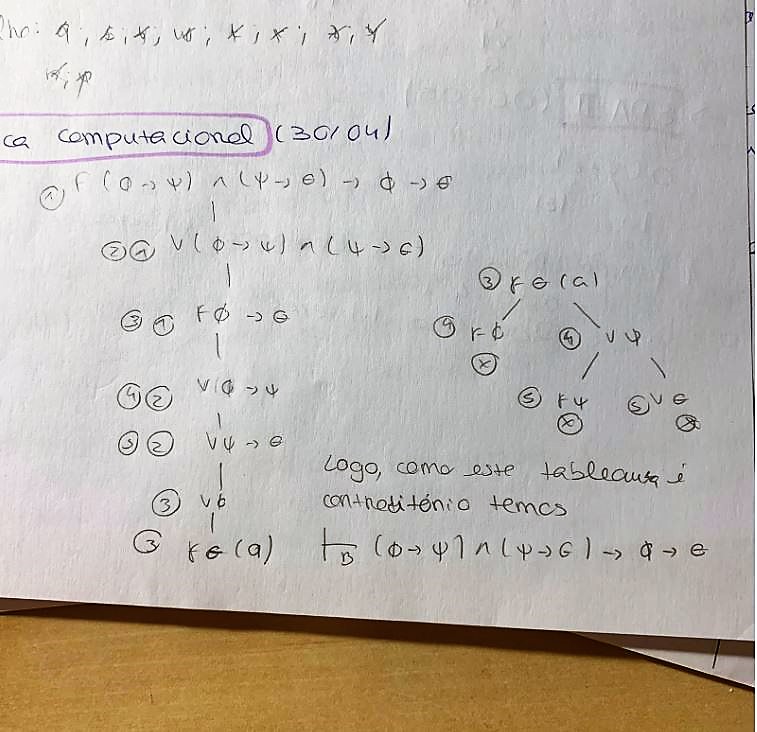 ca computacional (30/04)
① F (ϕ → ψ) ∧ (ψ → Θ) → ϕ → Θ
② ① V (ϕ → ψ) ∧ (ψ → Θ)
③ ① F ϕ → Θ
④ ② V ϕ → ψ
⑤ ② V ψ → Θ
③ V ϕ
③ F Θ (a)
③ F Θ (a)
④ F ϕ ④ V ψ
ⓧ
⑤ F ψ ⑤ V Θ
ⓧ ⓧ
Logo, como este tableauxa é
contraditório temos
⊢B (ϕ → ψ) ∧ (ψ → Θ) → ϕ → Θ